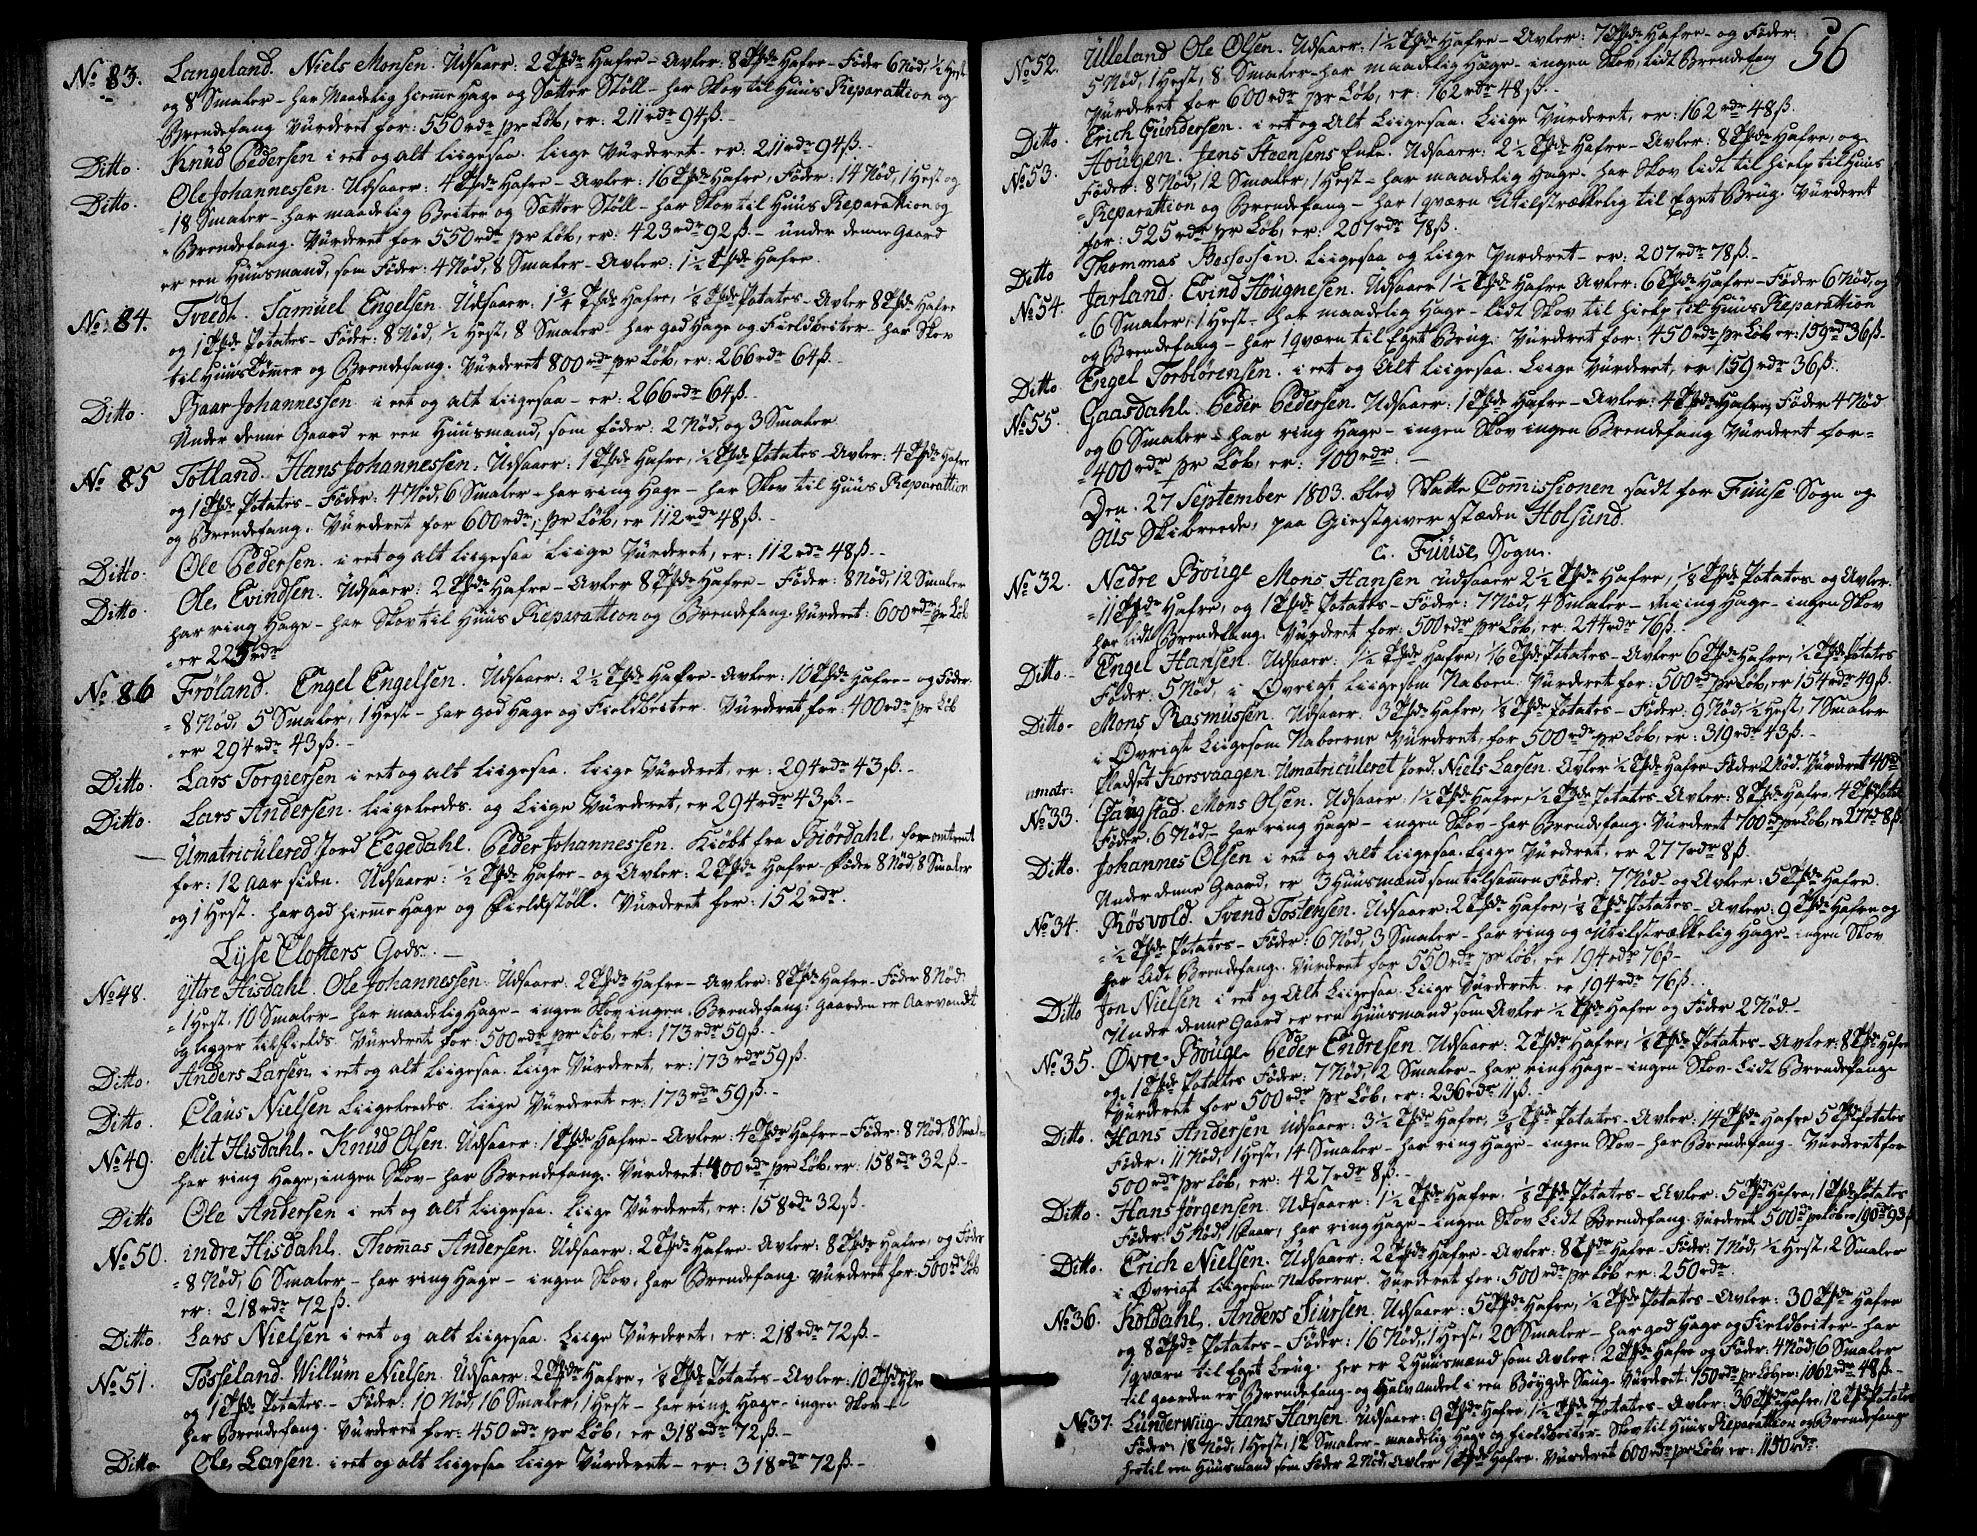 No 83. Langeland. Niels Monsen. Udsaaer: 2 Tpdr Hafre - Avler: 8 Tpdr Hafre - Føder 6 Nød, ½ Hest
og 8 Smaler - har Maadelig hiemme Hage og Sætter Støll - har Skov til Huus Reparattion og
Brendefang Vurderet for: 550 rdr pr Løb, er: 211 rdr 94 ß.-
Ditto. Knud Pedersen i eet og alt liigesaa. liige Vurderet - er: 211 rdr 94 ß.-
Ditto. Ole Johannessen. Udsaaer: 4 Tpdr Hafre - Avler: 16 Tpdr Hafre, Føder: 14 Nød, 1 Hest og
18 Smaler - har maadelig Beiter og Sætter Støll - har Skov til Huus Reparattion og
Brendefang. Vurderet for 550 rdr pr Løb, er: 423 rdr 92 ß.- under denne Gaard
er een Huusmand, som Føder: 4 Nød, 8 Smaler - Avler: 1½ Tpdr Hafre.
No 84. Tvedt. Samuel Engelsen. Udsaaer: 1¾ Tpdr Hafre, ⅛ Tpdr Potates - Avler 8 Tpdr Hafre
og 1 Tpdr Potates - Føder: 8 Nød, ½ Hest, 8 Smaler - har god Hage og Fieldbeiter - har Skov
til Huustømmer og Brendefang. Vurderet 800 rdr pr Løb, er: 266 rdr 64 ß.-
Ditto. Baar Johannessen i eet og alt liigesaa - er: 266 rdr 64 ß.-
Under denne Gaard er een Huusmand, som føder: 2 Nød, og 3 Smaler
No 85 Totland. Hans Johannessen. Udsaaer: 1 Tpdr Hafre, ¼ Tpdr Potates - Avler: 4 Tpdr Hafre
og 1 Tpdr Potates - Føder: 4 Nød, 6 Smaler - har ring Hage - har Skov til Huus Reparattion
og Brendefang. Vurderet for 600 rdr, pr Løb, er 112 rdr 48 ß.-
Ditto. Ole Pedersen. i eet og alt liigesaa liige Vurderet, er: 112 rdr 48 ß.-
Ditto Ole Evindsen. Udsaaer: 2 Tpdr Hafre - Avler 8 Tpdr Hafre - Føder: 8 Nød, 12 Smaler
har ring Hage - har Skov til Huus Reparattion og Brendefang. Vurderet: 600 rdr pr Løb
er 225 rdr
No 86 Frøland. Engel Engelsen. Udsaaer: 2½ Tpdr Hafre - Avler: 10 Tpdr Hafre - og Føder:
8 Nød, 5 Smaler, 1 Hest - har god Hage og Fieldbeiter. Vurderet for: 400 rdr pr Løb
er 294 rdr 43 ß.-
Ditto. Lars Torgiersen i eet og alt liigesaa. liige Vurderet, er: 294 rdr 43 ß.-
Ditto. Lars Andersen. liigeledes. og Liige Vurderet, er 294 rdr 43 ß.-
Umatriculered Jord Eegedahl. Peder Johannessen. Kiøbt fra Biørdahl. for omtrent
for: 12 Aar siden. Udsaaer: ½ Tpdr Hafre - og Avler: 2 Tpdr Hafre - Føder 8 Nød, 8 Smaler
og 1 Hest. har god hiemme Hage og Fieldstøll. Vurderet for: 152 rdr.
Lyse Closters Gods.-
No 48. Yttre Hisdahl. Ole Johannessen. Udsaaer: 2 Tpdr Hafre - Avler: 8 Tpdr Hafre - Føder 8 Nød.
1 Hest. 10 Smaler - har maadelig Hage - ingen Skov ingen Brendefang. Gaarden er Aarvandt
og ligger tilfields. Vurderet for: 500 rdr pr Løb, er: 173 rdr 59 ß.-
Ditto. Anders Larsen. i eet og alt liigesaa. Liige Vurderet, er: 173 rdr 59 ß.
Ditto. Claus Nielsen Liigeledes. liige Vurderet er: 173 rdr 59 ß.-
No 49. Mit Hisdahl. Knud Olsen. Udsaaer: 1 Tpdr Hafre - Avler: 4 Tpdr Hafre - Føder: 8 Nød, 8 Smal-
har ring Hage, ingen Skov - har Brendefang. Vurderet 400 rdr pr Løb, er: 158 rdr 32 ß.-
Ditto Ole Andersen i eet og alt liigesaa. liige Vurderet, er: 158 rdr 32 ß.
No 50. indre Hisdahl. Thommas Andersen. Udsaaer: 2 Tpdr Hafre - Avler: 8 Tpdr Hafre, og Føder
8 Nød, 6 Smaler - har ring Hage - ingen Skov, har Brendefang Vurderet for: 500 rdr Løb
er: 218 rdr 72 ß.
Ditto. Lars Nielsen i eet og alt liigesaa. Liige Vurderet, er: 218 rdr 72 ß.-
No 51. Tosseland. Willum Nielsen. Udsaaer: 2 Tpdr Hafre, ⅛ Tpdr Potates - Avler: 10 Tpdr
og 1 Tpdr Potates - Føder: 10 Nød, 16 Smaler, 1 Hest - har ring Hage - ingen Skov
har Brendefang. Vurderet for: 450 rdr pr Løb, er 318 rdr 72 ß.-
Ditto Ole Larsen. i eet og alt liigesaa liige Vurderet - er: 318 rdr 72 ß.-
56
No 52. Ulleland Ole Olsen. Udsaaer: 1½ Tpdr Hafre - Avler: 7 Tpdr Hafre - og Føder:
5 Nød, 1 Hest, 8 Smaler - har maadelig Hage - ingen Skov, lidt Brendefang
Vurderet for 600 rdr pr Løb, er: 162 rdr 48 ß.-
Ditto. Erich Gundersen. i eet og Alt Liigesaa. Liige Vurderet, er: 162 rdr 48 ß.
No 53. Hougen. Jens Steensens Enke. Udsaaer: 2½ Tpdr Hafre - Avler: 8 Tpdr Hafre, og
Føder: 8 Nød, 12 Smaler, 1 Hest - har maadelig Hage - har Skov lidt til hielp til Huus
Reparattion og Brendefang - har 1 qværn Utilstrækkelig til Eget Brug. Vurderet
for: 525 rdr pr Løb, er: 207 rdr 78 ß.
Ditto Thommas Bessesen. Liigesaa og liige Vurderet - er: 207 rdr 78 ß.-
No 54. Jarland. Evind Hougnesen. Udsaaer 1½ Tpdr Hafre Avler: 6 Tpdr Hafre - Føder 6 Nød, og
6 Smaler, 1 Hest - har maadelig Hage - lidt Skov til hielp til Huus Reparattion
og Brendefang - har 1 qværn til Eget Brug. Vurderet for: 450 rdr pr Løb er: 159 rdr 36 ß.-
Ditto Engel Torblørensen. i eet og Alt liigesaa. Liige Vurderet, er 159 rdr 36 ß.
No 55. Gaasdahl. Peder Pedersen. Udsaaer: 1 Tpdr Hafre - Avler: 4 Tpdr Hafre, Føder 4 Nød
og 6 Smaler - har ring Hage - ingen Skov ingen Brendefang Vurderet for=
400 rdr pr Løb, er: 100 rdr. -
Den: 27 September 1803. blev Skatte Commissionen sadt for Fuuse Sogn og
Ous Skibreede, paa Giestgiver stæden Holsund.
C. Fuuse Sogn.
No 32. Nedre Bouge Mons Hansen udsaaer 2½ Tpdr Hafre, ⅛ Tpdr Potates og Avler
11 Tpdr Hafre, og 1 Tpdr Potates - Føder: 7 Nød, 4 Smaler - ring Hage - ingen Skov
har lidt Brendefang. Vurderet for: 500 rdr pr Løb, er: 244 rdr 76 ß.
Ditto.- Engel Hansen. Udsaaer: 1½ Tpdr Hafre, 1/16 Tpdr Potates - Avler 6 Tpdr Hafre, ½ Tpdr Potates
Føder: 5 Nød, i Øvrigt liigesom Naboen. Vurderet for: 500 rdr pr Løb, er 154 rdr 49 ß.
Ditto- Mons Rasmussen. Udsaaer: 3 Tpdr Hafre, ⅛ Tpdr Potates - Føder: 9 Nød, ½ Hest, 7 Smaler
i Øvrigt Liigesom Naboerne Vurderet, for 500 rdr pr Løb, er: 319 rdr 43 ß.-
umatr: Pladset Korsvaagen. Umatriculeret Jord, Niels Larsen. Avler ½ Tpdr Hafre Føder 2 Nød. Vurderet 40 rd
No 33. Gaugstad. Mons Olsen. Udsaaer: 1½ Tpdr Hafre, ½ Tpdr Potates - Avler: 8 Tpdr Hafre 4 Tpdr Potat
Føder: 6 Nød, - har ring Hage - ingen Skov - har Brendefang. Vurderet 700 rd pr Løb, er 277 rd 8 ß.
Ditto. Johannes Olsen i eet og Alt liigesaa. liige Vurderet. er 277 rdr 8 ß.
Under denne Gaard, er 3 Huusmænd som tilsammen Føder: 7 Nød - og Avler: 5 Tpdr Hafre.
No 34. Røsvold. Svend Tostensen. Udsaaer: 2 Tpdr Hafre, ⅛ Tpdr Potates - Avler: 9 Tpdr Hafre og
½ Tpdr Potates - Føder: 6 Nød, 3 Smaler - har ring og Utilstrækkelig Hage - ingen Skov
har Lidt Brendefang. Vurderet for 550 rdr pr Løb. er 194 rdr 76 ß.-
Ditto Jon Nielsen i eet og Alt Liigesaa. Liige Vurderet er 194 rdr 76 ß.
Under denne Gaard er een Huusmand som Avler ½ Tpdr Hafre og Føder 2 Nød.-
No 35. Øvre Bouge Peder Endresen. Udsaaer: 2 Tpdr Hafre, ⅛ Tpdr Potates - Avler: 8 Tpdr Hafre
og 1 Tpdr Potates Føder: 7 Nød, 2 Smaler - har ring Hage - ingen Skov - Lidt Brendefang
Vurderet for 500 rdr pr Løb, er: 236 rdr 11 ß.-
Ditto. Hans Andersen Udsaaer: 3½ Tpdr Hafre, ⅜ Tpdr Potates - Avler: 14 Tpdr Hafre 5 Tpdr Potates
Føder: 11 Nød, 1 Hest, 14 Smaler - har ring Hage - ingen Skov - har Brendefang - Vurderet for
500 rdr pr Løb, er: 427 rdr 8 ß.-
Ditto. Hans Jørgensen. Udsaaer: 1½ Tpdr Hafre. ⅛ Tpdr Potates - Avler: 5 Tpdr Hafre, 1 Tpdr Potates
Føder: 5 Nød, 1 har ring Hage - ingen Skov Lidt Brendefang. Vurderet 500 rd pr Løb er 190 rd 93 ß
Ditto. Erich Nielsen. Udsaaer: 2 Tpdr Hafre - Avler: 8 Tpdr Hafre - Føder: 7 Nød, ½ Hest, 2 Smaler
i Øvrigt liigesom Naboerne. Vurderet for: 500 rdr pr Løb er: 250 rdr.
No 36. Koldahl. Anders Siursen. Udsaaer: 5 Tpdr Hafre, ½ Tpdr Potates - Avler: 30 Tpdr Hafre
og 8 Tpdr Potates - Føder: 16 Nød, 1 Hest, 20 Smaler - har god Hage og Fieldbeiter - har
1 qværn til Eget brug. her er 2 Huusmænd som Avler: 2 Tpdr Hafre og Føder: 4 Nød, 6 Smaler
til gaarden er Brendefang - og Halv Andeel i een Bøygde Saug - Vurderet: 750 rdr pr Løb, er: 1062 rdr 48 ß.-
No 37. Lunderwiig Hans Hansen. Udsaaer: 9 Tpdr Hafre, 1½ Tpdr Potates - Avler: 36 Tpdr Hafre, 12 Tpdr Potates
Føder: 18 Nød, 1 Hest, 12 Smaler - maadelig Hage og fieldbeiter - Skov til Huus Reparattion og Brendefang
hertil een Huusmand som Føder 2 Nød, Avler 1 Tpdr Hafre. Vurderet 600 rdr pr Løb, er: 1150 rdr.